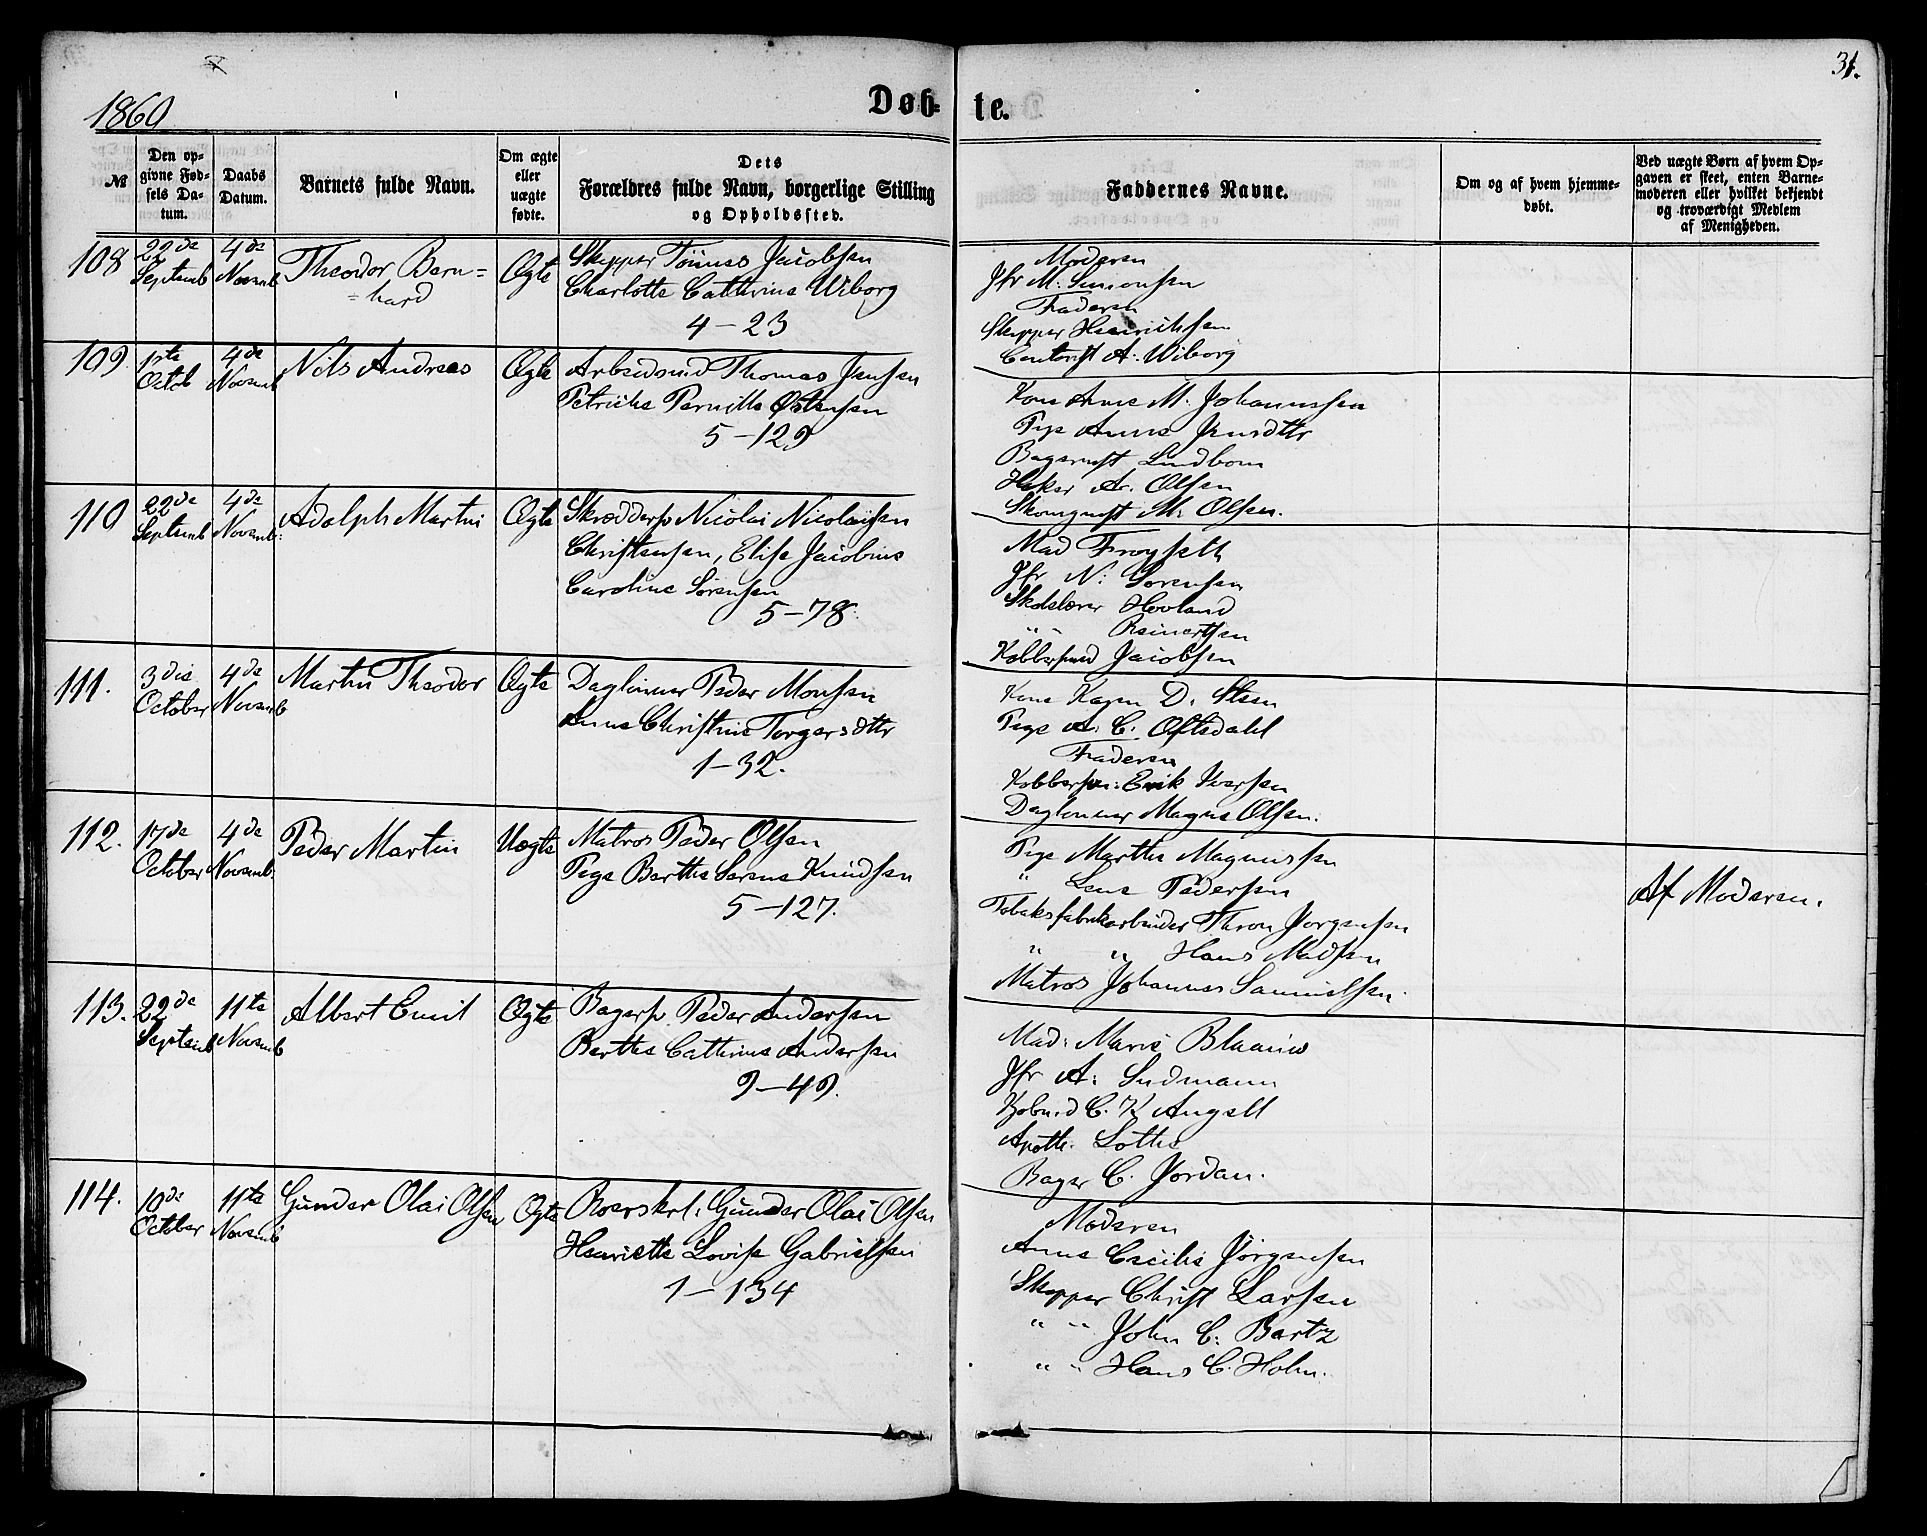 31.
1860
Døb-te.
№
Den op-
givne Fød-
sels Da-
tum.
Daabs
Datum.
Barnets fulde Navn.
Om ægte
eller
uægte
fødte.
Dets
Forældres fulde Navn, borgerlige Stilling
og Opholdssted.
Faddernes Navne.
Om og af hvem hjemme-
døbt.
Ved uægte Børn af hvem Op-
gaven er skeet, enten Barne-
moderen eller hvilket bekjendt
og troværdigt Medlem
af Menigheden.
108
22de
Septemb
4de
Novemb
Theodor Bern=
=hard
Ægte
Skipper Tönnes Jacobsen
Charlotte Cathrine Wiborg
4-23
Moderen
Jfr M. Simonsen
Faderen
Skipper Henrichsen
A. Wiborg
109
1ste
Octob
4de
Novemb
Nils Andreas
Ægte
Arbeidsmd Thomas Jensen
Petriche Pernille Østensen
5-129
Kone Anne M. Johannessen
Pige Anna Jensdttr
Bagermst Lindbom
Høker A. Olsen
Skomgmst M. Olsen.
110
22de
Septemb
4de
Novemb:
Adolph Martin
Ægte
Skrædders Nicolai Nicolaisen
Christensen, Elise Jacobine
Caroline Sörensen
5-78.
Mad Froyseth
Jfr N: Sorensen
Skolelærer Hovland
" " Reinertsen
Kobbersmed Jacobsen
111.
3die
October
4de
Novemb
Martin Theodor
Ægte
Daglönner Peder Monsen
Anne Christine Torgersdttr
1-32.
Kone Karen D. Steen
Pige A. C. Oftedahl
Faderen
Kobbersm: Erik Iversen
Daglönner Magne Olsen.
112.
17de
October
4de
Novemb.
Peder Martin
Uægte
Matros Peder Olsen
Pige Berthe Serene Knudsen
5-127.
Pige Marthe Magnussen
" Lene Pedersen
Tobaksfabrikarbeider Thron Jorgensen
" " Hans Madsen
Matros Johannes Samuelsen.
Af Moderen.
113.
22de
Septemb
11te
Novemb
Albert Emil
Ægte
Bagers Peder Andersen
Berthe Cathrine Andersen
9-49.
Mad: Marie Blaauw
Jfr A: Sudmann
Kjobmd C. K Angell
Apoth. Lothe
Bager C. Jordan.
114.
10de
October
11te
Novemb
Gunder Olai Olsen
Ægte
Roerskrl. Gunder Olai Olsen
Henriette Lovise Gabrielsen
1-134
Moderen
Anne Cecilie Jörgensen
Skipper Christ Larsen
" " John C. Bartz
" " Hans C. Holm.